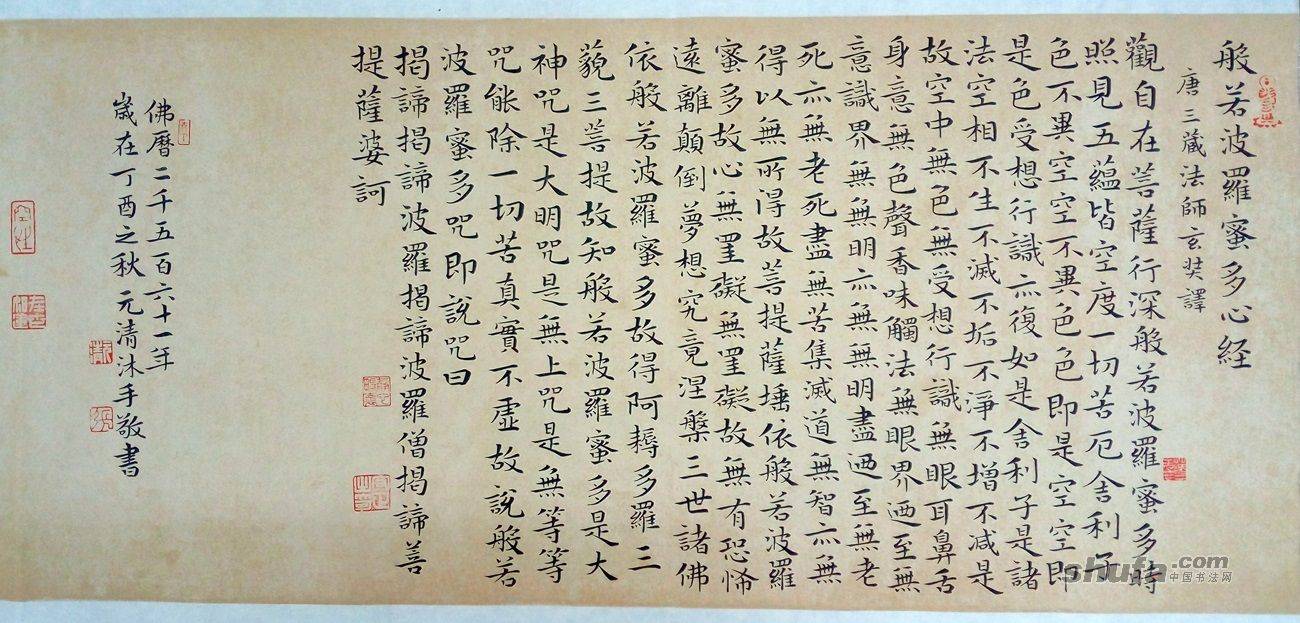 般若波羅蜜多心経
唐三藏法師玄奘譯
觀自在菩薩行深般若波羅蜜多時
照見五蘊皆空度一切苦厄舍利子
色不異空空不異色色即是空空即
是色受想行識亦復如是舍利子是諸
法空相不生不滅不垢不淨不增不减是
故空中無色無受想行識無眼耳鼻舌
身意無色聲香味觸法無眼界廼至無
意識界無無明亦無無明盡廼至無老
死亦無老死盡無苦集滅道無智亦無
得以無所得故菩提薩埵依般若波羅
蜜多故心無罣礙無罣礙故無有恐怖
遠離顛倒夢想究竟涅槃三世諸佛
依般若波羅蜜多故得阿耨多羅三
藐三菩提故知般若波羅蜜多是大
神咒是大明咒是無上咒是無等等
咒能除一切苦真實不虛故說般若
波羅蜜多咒即說咒曰
揭諦揭諦波羅揭諦波羅僧揭諦菩
提薩婆訶
佛曆二千五百六十一年
歲在丁酉之秋元清沐手敬書
shufa.com
中国书法网